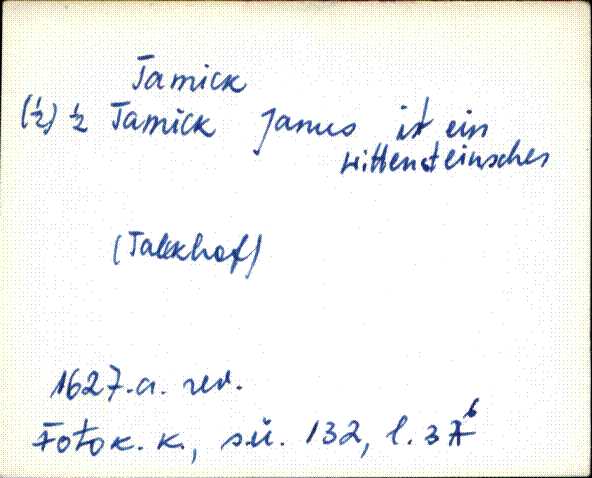 Tamick
(½) ½ Tamick Janus ist ein
wittensteinsches
(Talkhof)
1627.a. rev.
Fotok. k., sü. 132, l. 37b